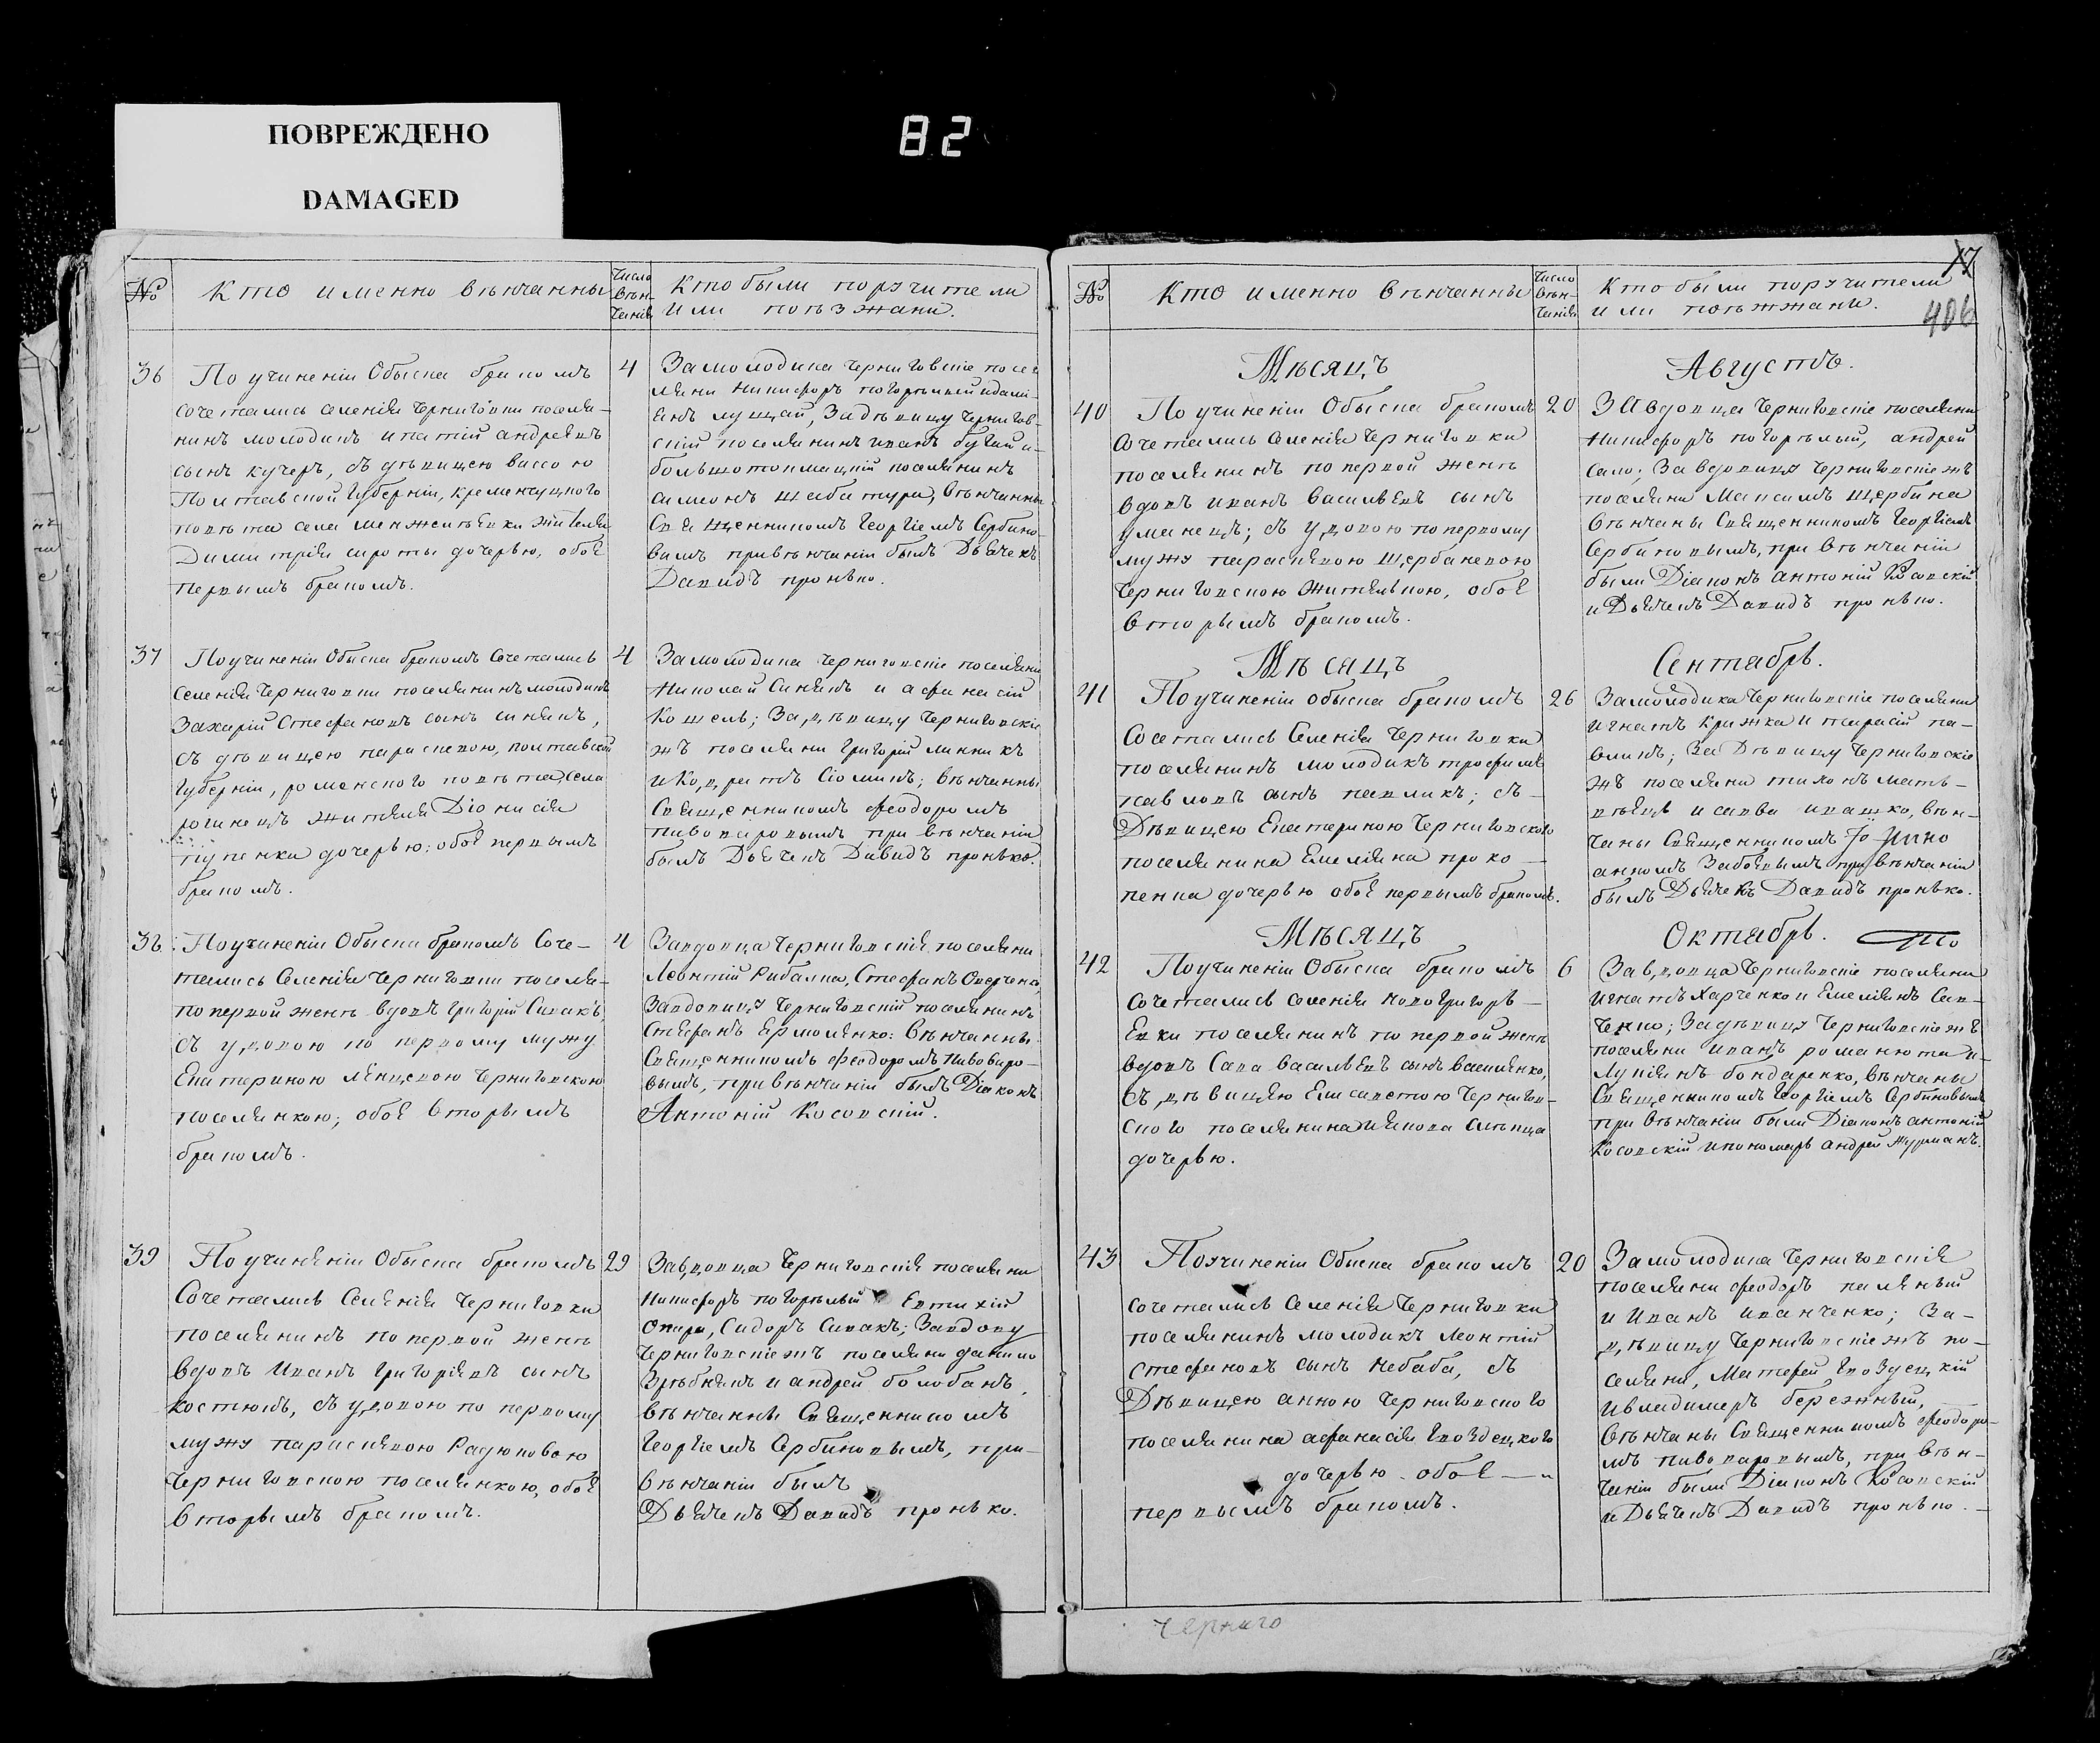 ПОВРЕЖДЕНО
DAMAGED
82
№
Кто именно вѣнчанны
Число
вѣн-
чанія
Кто были поручители
или поѣзжани.
36
По учиненіи Обыска бракомъ
сочетались селенія Черниговки поселя-
нинъ молодикъ ипатій андреевъ
сынъ кучеръ, съ дѣвицею вассою
Полтавской Губерніи, кременчуцкого
повѣта села
Димитрія сироты дочерью, обое
первымъ бракомъ.
4
За молодика Черниговскіе посел
ляни никифоръ погорѣлый
лущай, За дѣвицу Чернигов-
скій поселянинъ иванъ бугай и-
большотокмацкій поселянинъ
симионъ шабатура, вѣнчанны
Священникомъ Георгіемъ Сербино-
вымъ при вѣнчаніи былъ Дьячекъ
Давидъ пронько.
37
По учиненіи Обыска бракомъ Сочетались
Селенія Черниговки поселянинъ молодикъ
Захарій Стефановъ сынъ синякъ,
съ дѣвицею параскевою, полтавской
Губерніи, роменского повѣта, села
рогинецъ жителя Діонисія
пупенка дочерью: обое первымъ
бракомъ.
4
За молодика Черниговскіе поселяни
Николай Синякъ и афанасій
Кошель; За дѣвицу Черниговскіе
жъ поселяни Григорій линникъ
и Кодратъ Сіоминъ; вѣнчанны
Священникомъ феодоромъ
пивоваровымъ при вѣнчаніи
былъ Дьячекъ Давидъ пронько.
38
По учиненіи Обыска бракомъ Соче-
тались Селенія Черниговки поселя-
по первой женѣ вдовъ Григорій Сивакъ
съ удовою по первому мужу
Екатериною лянцевою Черниговскою
поселянкою; обое вторымъ
бракомъ.
4
За вдовца Черниговскія поселяни
Леонтій Рибалка, Стефанъ
За вдовицу Черниговскій поселянинъ
Стефанъ Ермоленко: вѣнчанны
Священникомъ феодоромъ пивоваро-
вымъ, при вѣнчаніи былъ Діаконъ
Антоній Косовскій.
39
По учиненіи Обыска бракомъ
Сочетались Селенія Черниговки
поселянинъ по первой женѣ
вдовъ Иванъ Григоріевъ сынъ
костюкъ, съ удовою по первому
мужу параскевою Радюковою
Черниговскою поселянкою, обое
вторымъ бракомъ.
29
За вдовца Черниговскія поселяни
Никифоръ погорѣлый Евтихій
Опара, Сидоръ Сивакъ; За вдову
Черниговскіе жъ поселяни данило
и андрей болобанъ,
вѣнчанны Священникомъ
Георгіемъ Сербиновымъ, при-
вѣнчаніи былъ
Дьячекъ Давидъ пронько.
17
406
№
Кто именно вѣнчанны
Число
вѣн-
чанія
Кто были поручители
или поѣжжани.
Мѣсяцъ
Августъ.
40
По учиненіи Обыска бракомъ
Сочетались Селенія Черниговки
поселянинъ по первой женѣ
вдовъ иванъ васильевъ сынъ
уманецъ; съ удовою по первому
мужу параскевою щербаневою
Черниговскою жителькою, обое
вторымъ бракомъ.
20
За вдовца Черниговскіе поселяни
Никифоръ погорѣлый, андрей
сало; За вдовицу Черниговскіе жъ
поселяни Максимъ щербина
вѣнчаны Священникомъ Георгіемъ
Сербиновымъ, при вѣнчаніи
были Діаконъ антоній Косовскій
и Дьячекъ Давидъ пронько.
Мѣсяцъ
Сентябрь.
41
По учиненіи обыска бракомъ
Сосетались Селенія Черниговки
поселянинъ молодикъ трофимъ
павловъ сынъ павликъ; съ-
Дѣвицею Екатериною Черниговского
поселянина Емеляна проко-
пенка дочерью обое первымъ бракомъ.
26
За молодика Черниговскіе поселяни
игнатъ Крижка и тарасій па-
вликъ; За Дѣвицу Черниговскіе
жъ поселяни тихонъ матв-
вѣецъ и савва ивашко, вѣн-
чаны Священникомъ Іо
анномъ Забоевымъ при вѣнчаніи
былъ Дьячекъ Давидъ пронько.
Мѣсяцъ
Октябрь.
42
По учиненіи Обыска бракомъ
сочетались селенія новогригорь-
евки поселянинъ по первой женѣ
вдовъ Сава васильевъ сынъ василенко,
съ дѣвицею Елисаветою Чернигов-
ского поселянина якова слѣпца
дочерью.
6
За вдовца Черниговскіе поселяни
игнатъ Харченко и Емелянъ Сав-
ченко; За дѣвицу Черниговскіе жъ
поселяни иванъ романюта и-
лукіянъ бондаренко, вѣнчаны
Священникомъ Георгіемъ Сербиновымъ
при вѣнчаніи были Діаконъ антоній
Косовскій и пономарь андрей
43
По учиненіи Обыска бракомъ
сочетались Селенія Черниговки
поселянинъ молодикъ Леонтій
Стефановъ сынъ небаба, съ
Дѣвицею анною Черниговского
поселянина афанасія Гвоздецкого
дочерью обое
первымъ бракомъ.
20
За молодика Черниговскія
поселяни феодоръ
и Иванъ иванченко; За-
дѣвицу Черниговскіе жъ по-
селяни, Матфей Гвоздецкій
и владимеръ бережный,
вѣнчаны Священникомъ феодоро-
мъ пивоваровымъ, при вѣн-
чаніи были Діаконъ Косовскій
и Дьячекъ Давидъ пронько.
Черниго